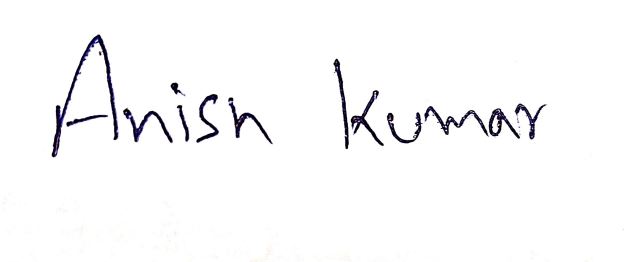 Anish Kumar